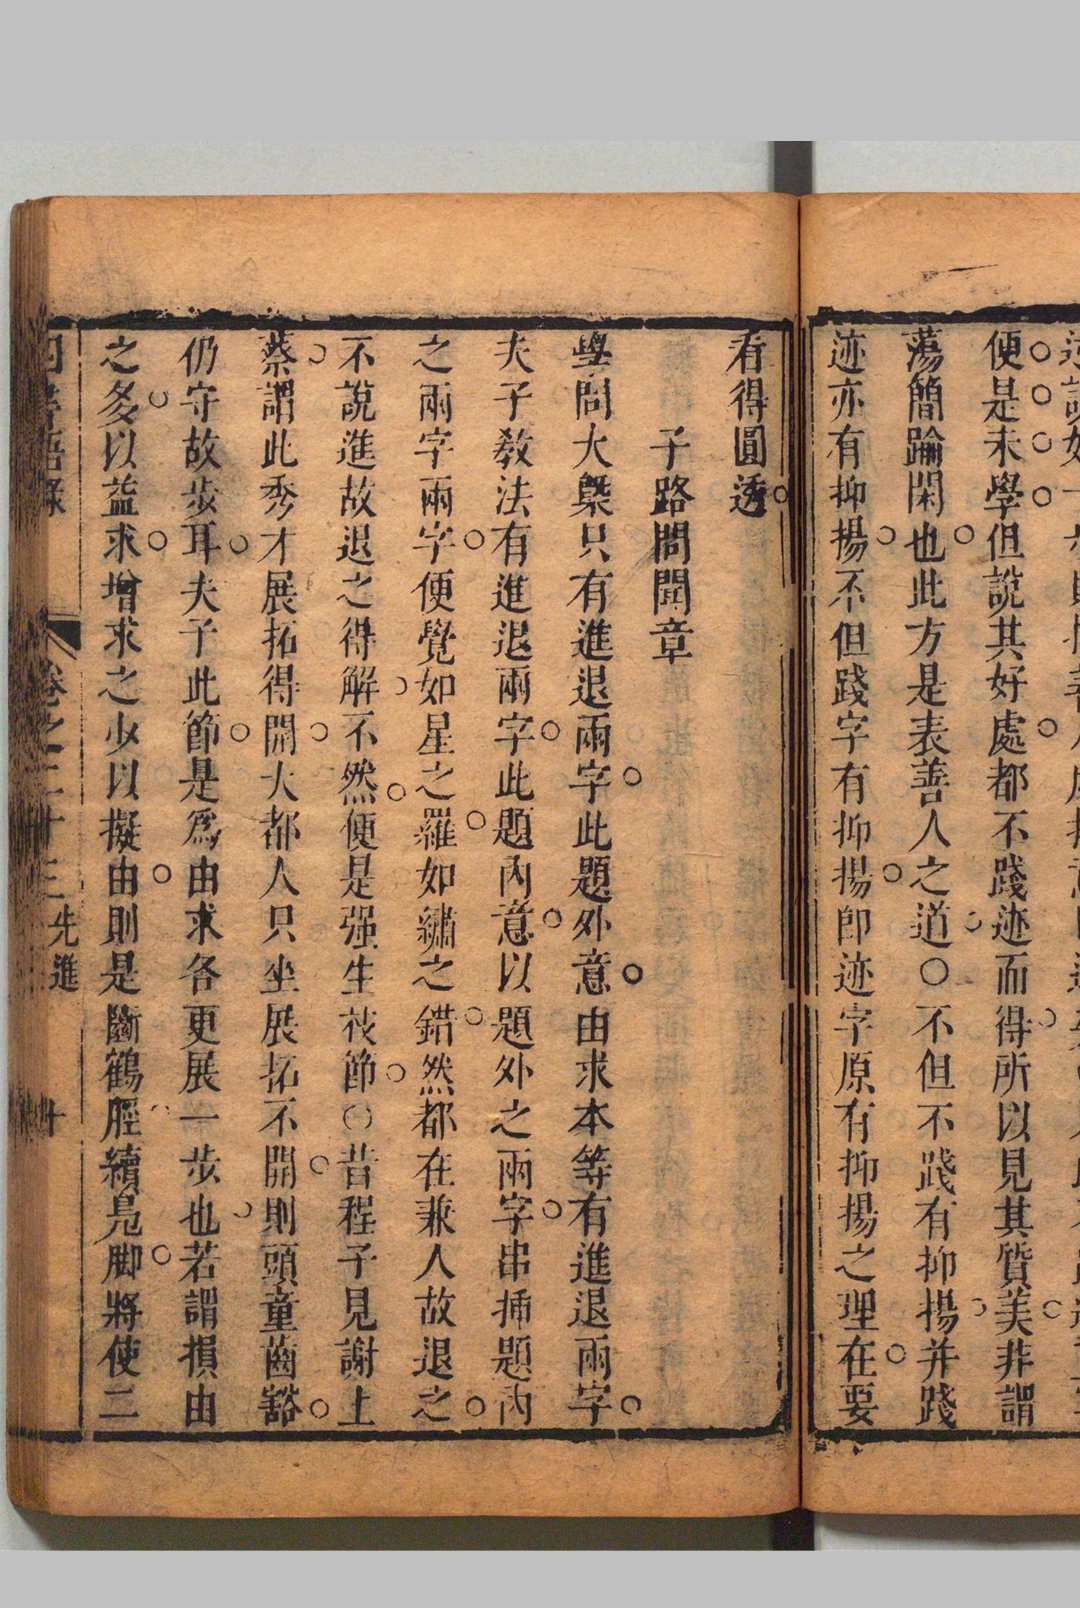 便是未學但說其好處都不踐迹而得所以見其質美非謂
蕩簡踰閑也此方是表善人之道○不但不踐有抑揚并踐
迹亦有抑揚不但踐字有抑揚卽迹字原有抑揚之理在要
看得圓透
子路問聞章
學問大槩只有進退兩字此題外意由求本等有進退兩字
夫子教法有進退兩字此題內意以題外之兩字串揷題內
之兩字兩字便覺如星之羅如繡之錯然都在兼人故退之
不說進故退之得解不然便是强生枝節○昔程子見謝上
蔡謂此秀才展拓得開大都人只坐展拓不開則頭童齒豁
仍守故步耳夫子此節是爲由求各更展一步也若謂損由
之多以益求增求之少以擬由則是斷鶴脛續鳧脚將使二
卷之二十三 先進